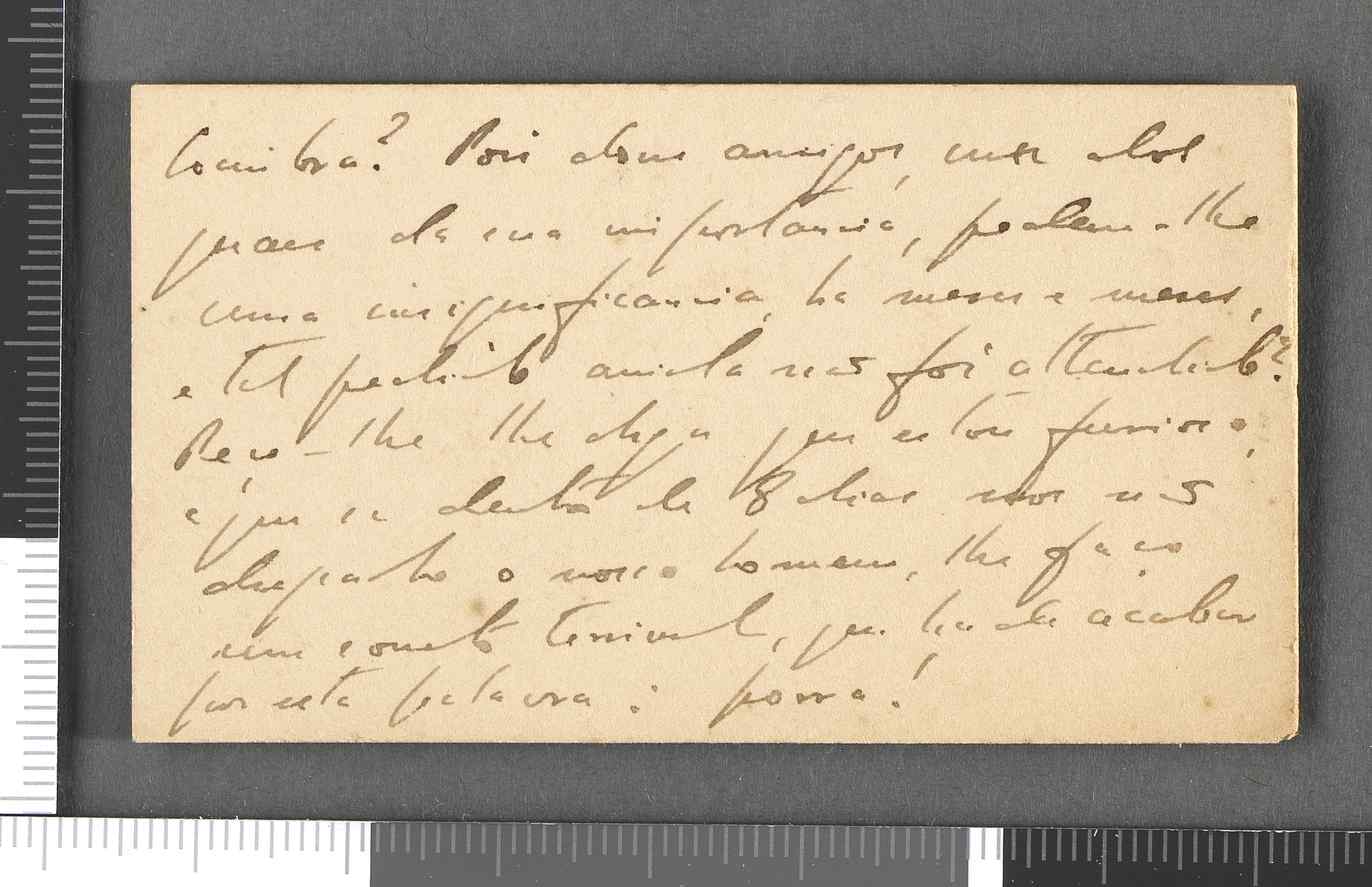 Coimbra? Pois dous amigos, um dos
quaes da sua importancia, pedem-lhe
uma insignificancia, ha meses e meses,
e tal pedido ainda não foi attendido?
Peço-lhe lhe diga que estou furioso,
e que se dentro de 8 dias nos não
despacha o nosso homem, lhe faço
um soneto terrivel, que ha de acabar
por esta palavra: porra!